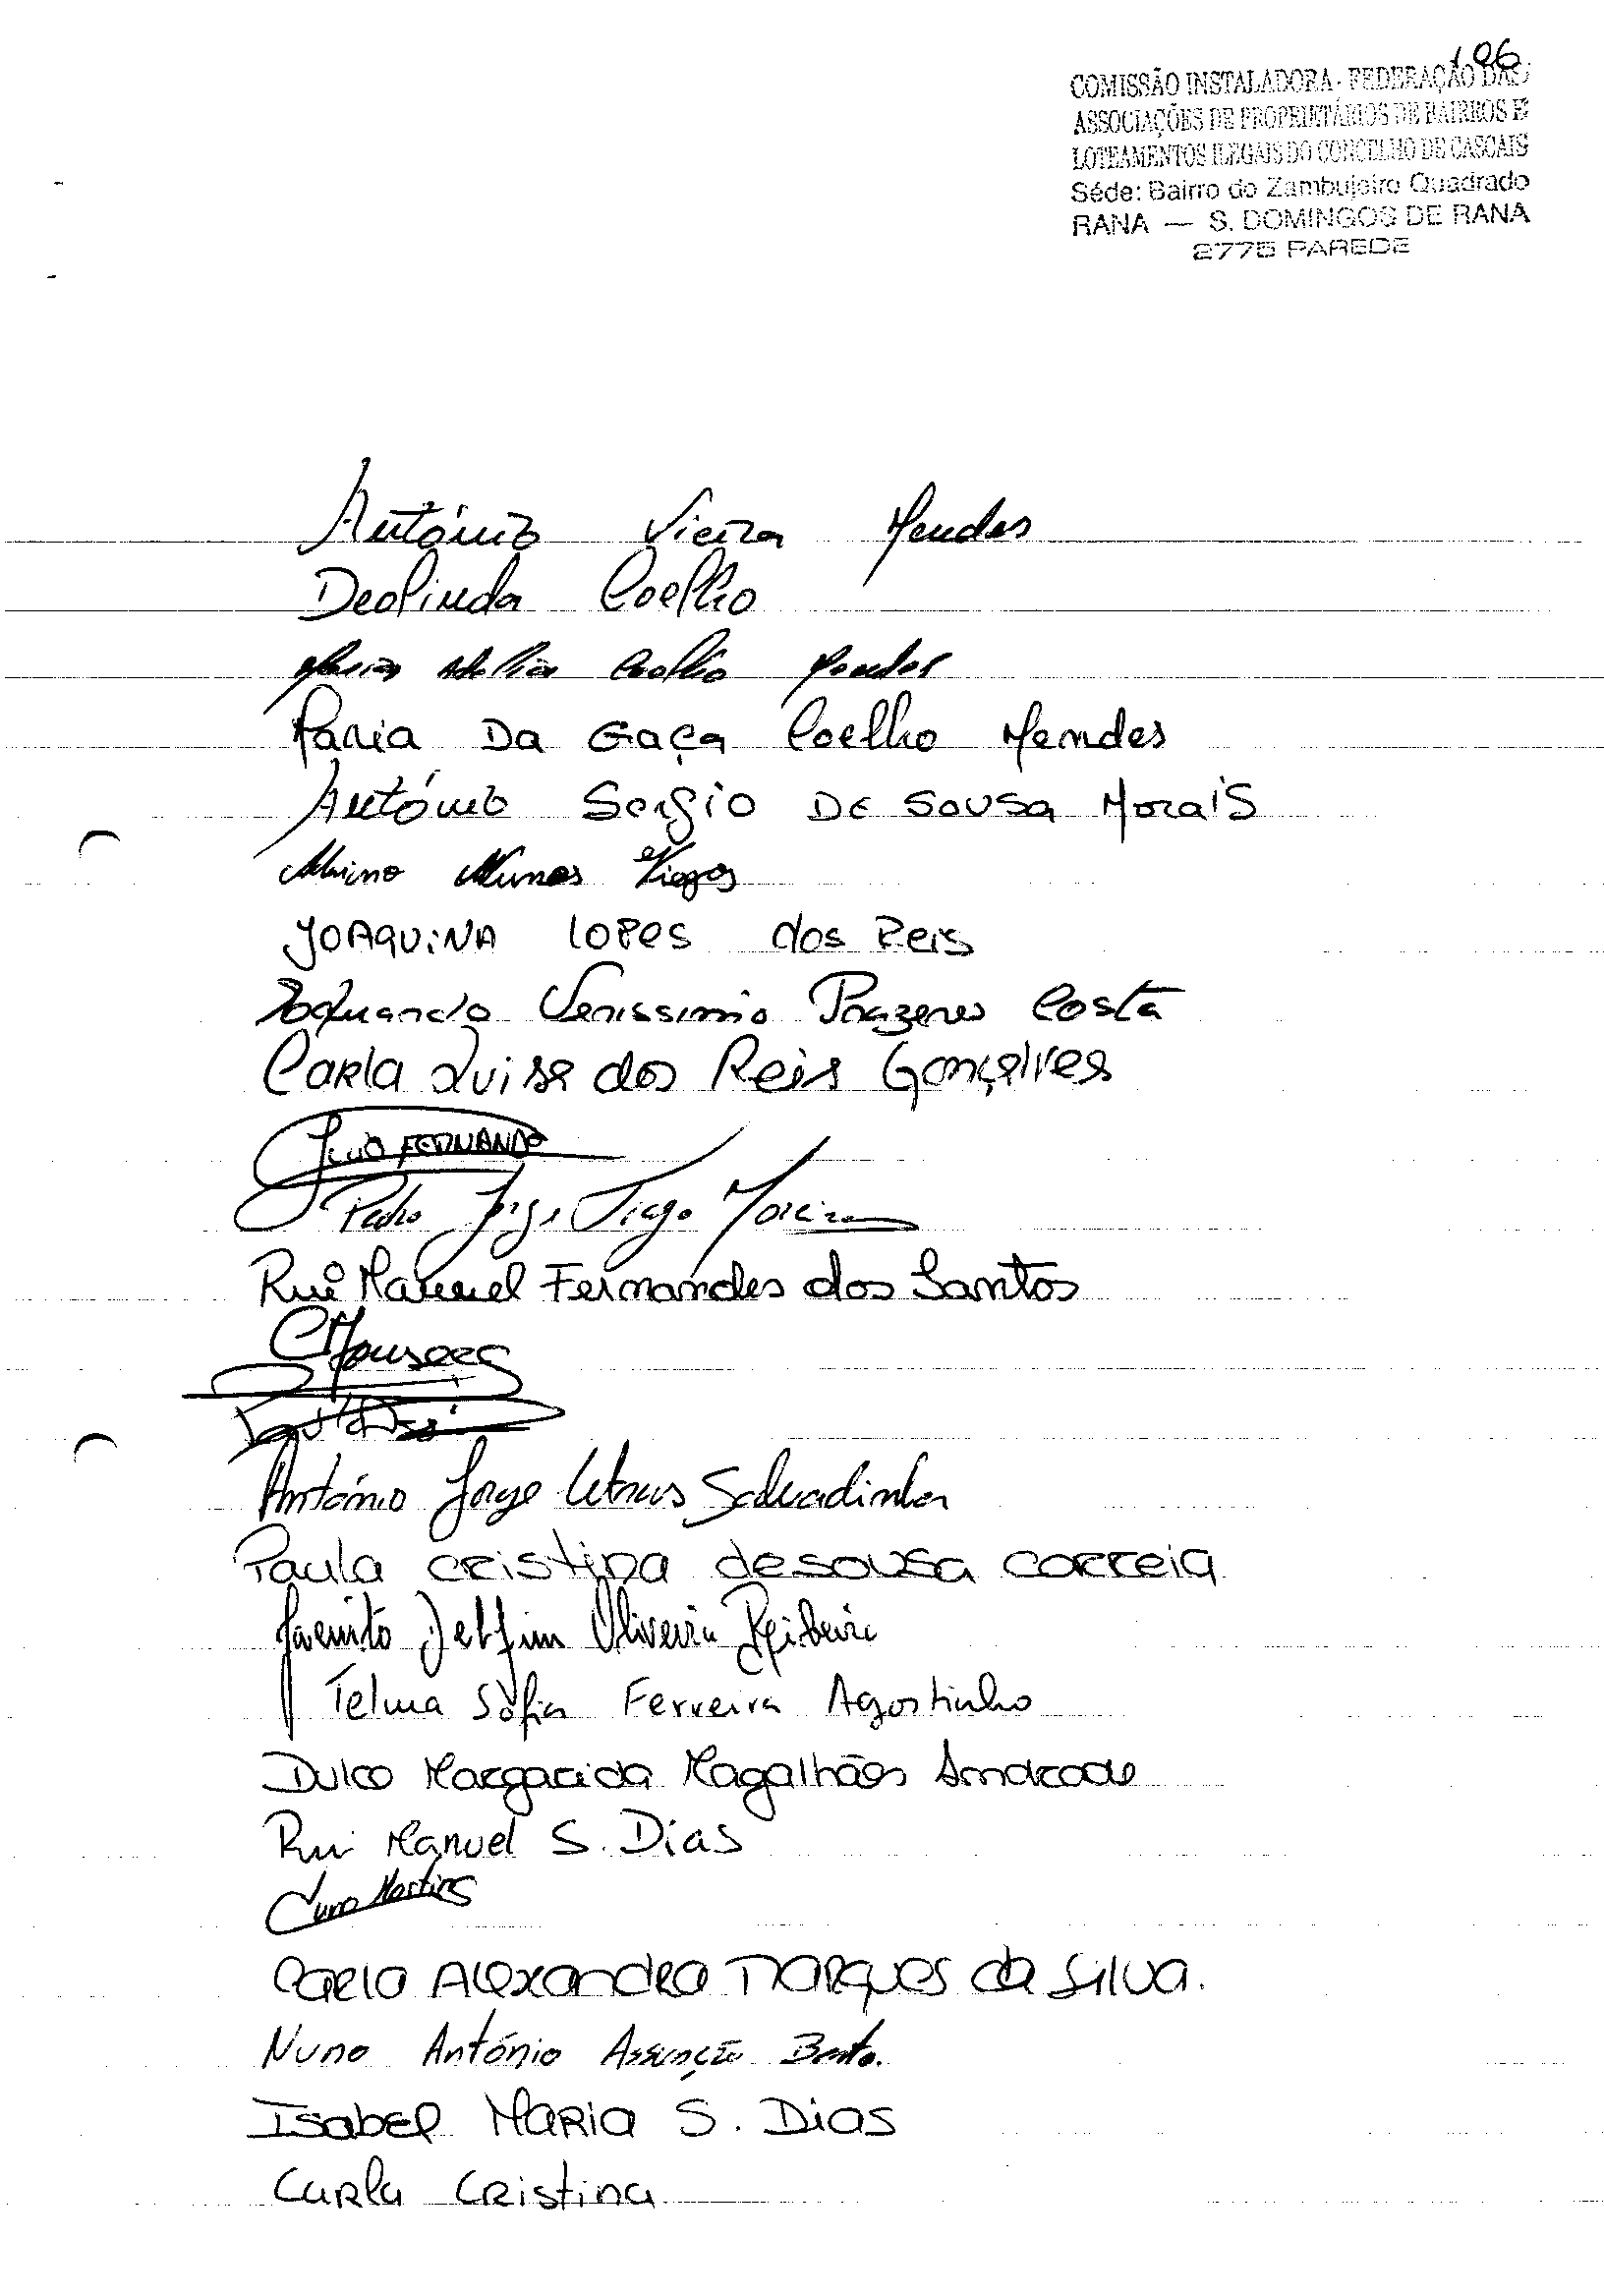 106
COMISSÃO INSTALADORA - FEDERAÇÃO DAS
ASSOCIAÇÕES DE PROPRIETÁRIOS DE BAIRROS E
LOTEAMENTOS ILEGAIS DO CONCELHO DE CASCAIS
Séde: Bairro do Zambujeiro Quadrado
RANA — S. DOMINGOS DE RANA
2775 PAREDE
António Vieira Mendes
Deolinda Coelho
Maria Adelia Coelho Mendes
Maria Da Gaça Coelho Mendes
António Sergio DE SOUSA Morais
Nunes Viegas
JOAQUINA LOPES dos Reis
Verissimo Prazeres Costa
Carla Luisa dos Reis Gonçalves
FERNANDO
Pedro Jorge Tiago Moreira
Rui Manuel Fernandes dos Santos
CMFonseca
António Jorge Salvadinha
Paula cristina de sousa correia
Jacinto Delfim Oliveira Ribeiro
Telma Sofia Ferreira Agostinho
Dulce Margarida Magalhães Andrade
Rui Manuel S. Dias
Nuno Martins
Carla Alexandra Marques da Silva.
Nuno António Assunção Bento.
Isabel Maria S. Dias
Carla Cristina